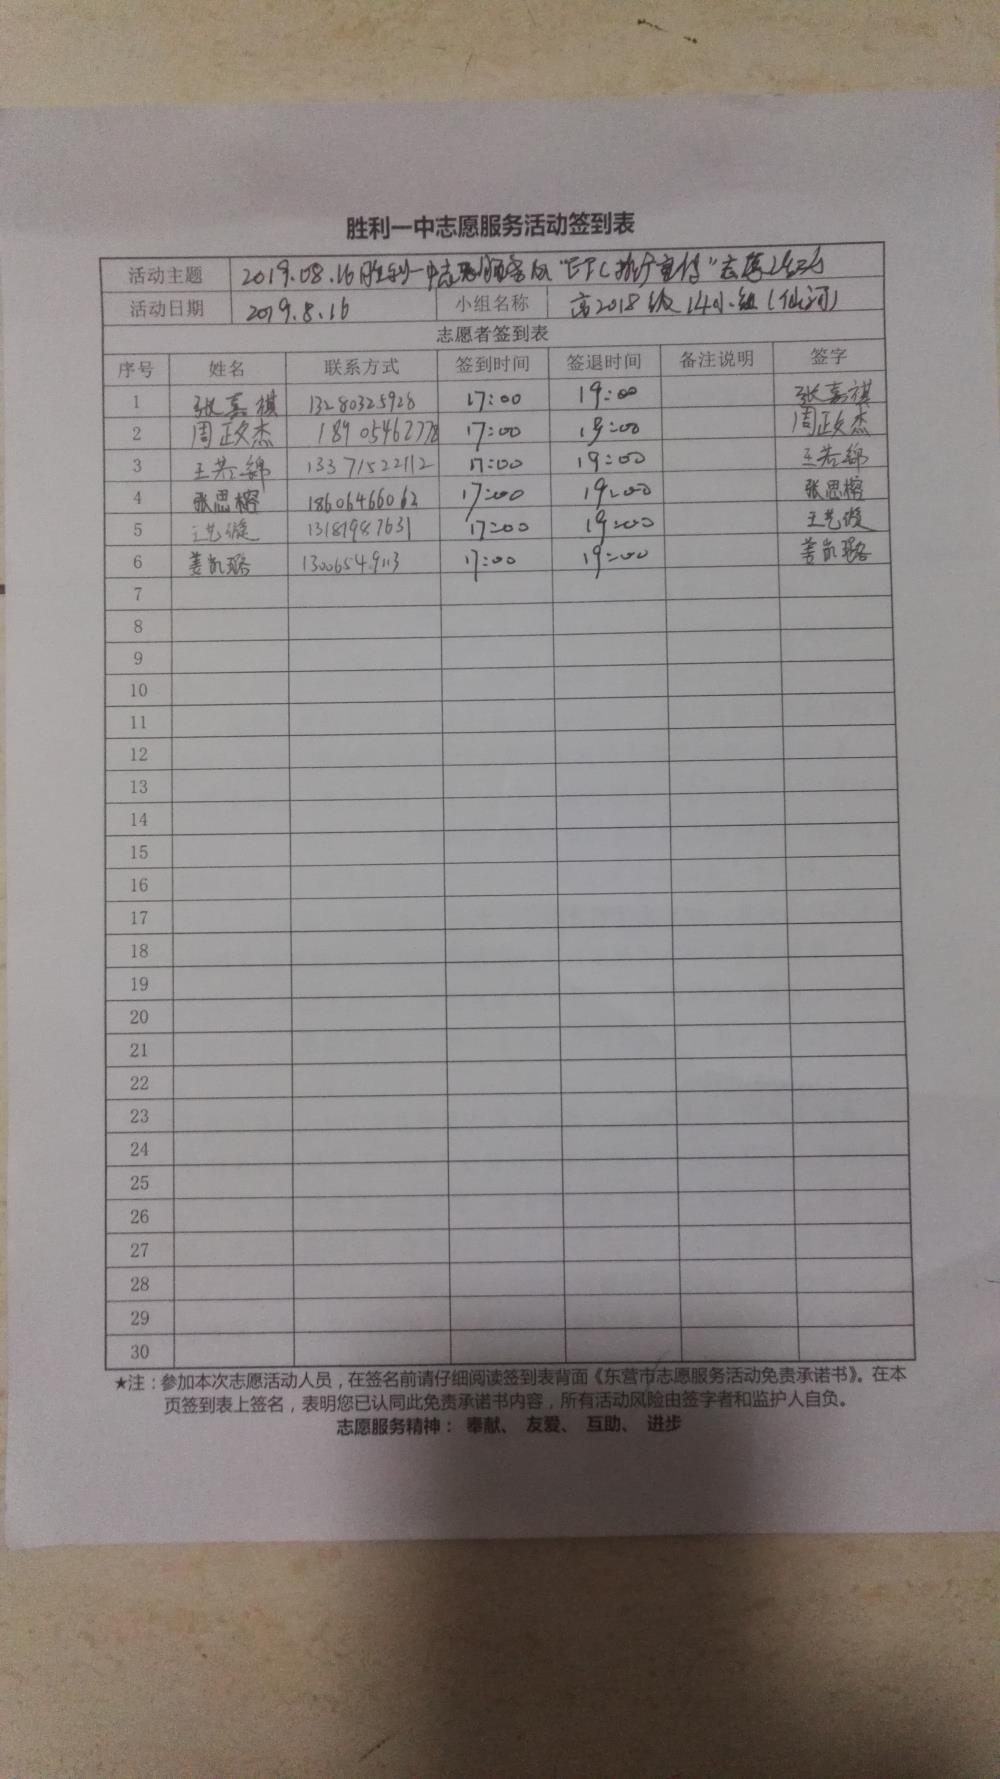 胜利一中志愿服务活动签到表
活动主题 2019.08.16胜利一中志愿服务队“ETC推广宣传”志愿活动
活动日期 2019.8.16 小组名称 高2018级14小组(仙河)
志愿者签到表
序号 姓名 联系方式 签到时间 签退时间 备注说明 签字
1 张嘉祺 13280325928 17:00 19:00 张嘉祺
2 周政杰 18905462778 17:00 19:00 周政杰
3 王若锦 13371522112 17:00 19:00 王若锦
4 张思榕 18606466062 17:00 19:00 张思榕
5 王艺璇 13181987631 17:00 19:00 王艺璇
6 姜凯璐 13006549113 17:00 19:00 姜凯璐
7
8
9
10
11
12
13
14
15
16
17
18
19
20
21
22
23
24
25
26
27
28
29
30
★注：参加本次志愿活动人员，在签名前请仔细阅读签到表背面《东营市志愿服务活动免责承诺书》。在本
页签到表上签名，表明您已认同此免责承诺书内容，所有活动风险由签字者和监护人自负。
志愿服务精神： 奉献、 友爱、 互助、 进步